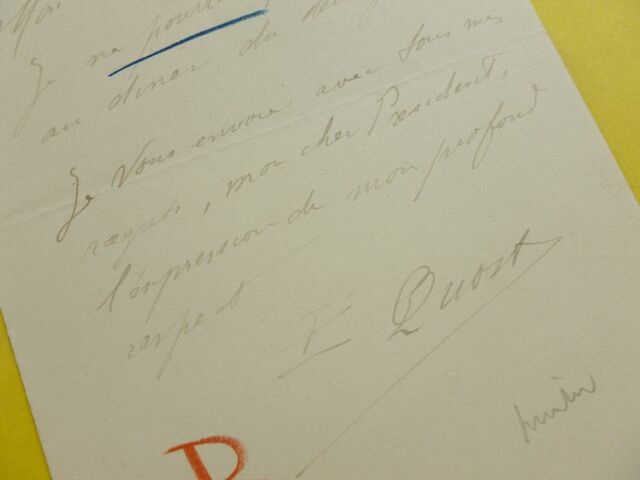 Je ne pourr
au diner du
Je vous envoie avec tous mes
regrets, mon cher Président,
l'expression de mon profond
respect
E Quost
R